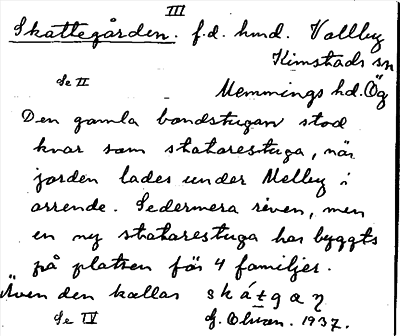 III
Skattegården. f.d. hmd. Vallby
Kimstads sn
Se II
Memmings hd. Ög
Den gamla bondstugan stod
kvar som statarestuga, när
jorden lades under Melby i
arrende. Sedermera riven, men
en ny statarestuga har byggts
på platsen för 4 familjer.
Även den kallas skátgaɳ
Se IV
G. Olson. 1937.